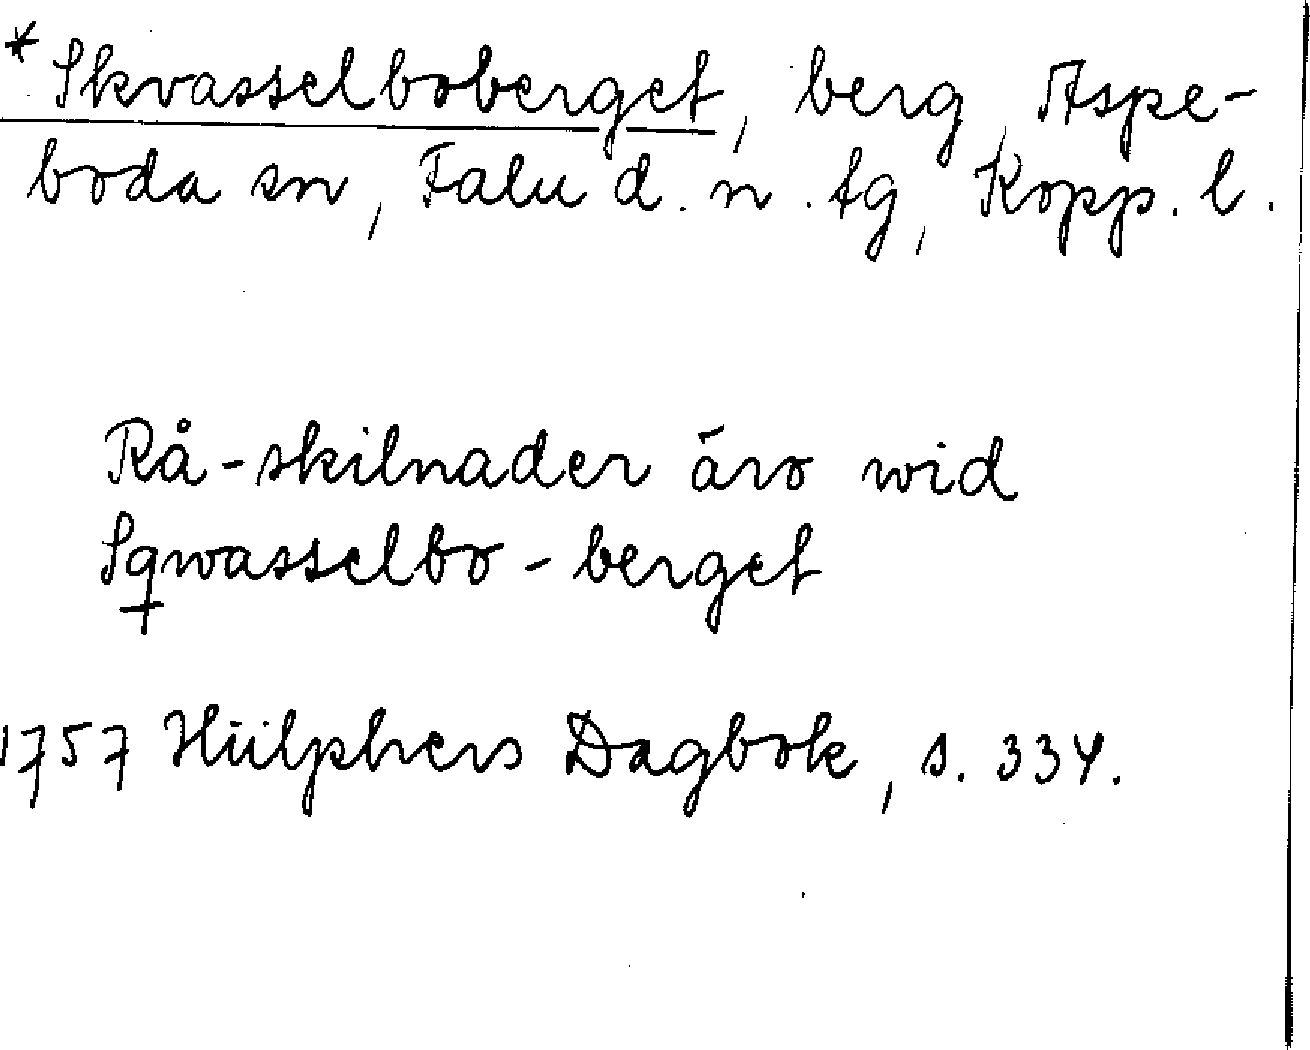 *Skvasselboberget, berg, Aspe-
boda sn, Falu d. n. tg, Kopp. l.
Rå-skilnader äro wid
Sqwasselbo-berget
1757 Hülphers Dagbok, s. 334.